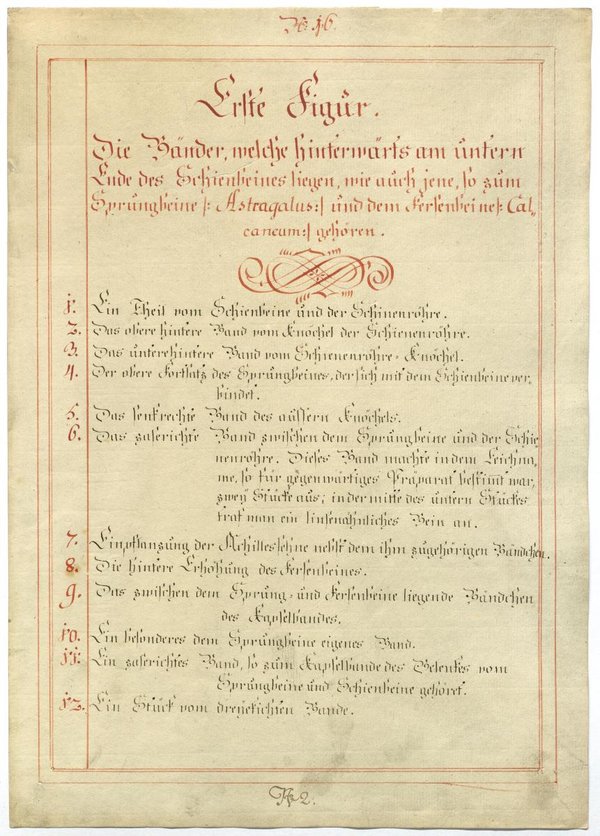 N: 16.
Erste Figur.
Die Bänder, welche hinterwärts am untern
Ende des Schienbeines liegen, wie auch jene, so zum
Sprungbeine |: Astragalus :| und dem Fersenbeine |: Cal=
caneum :| gehören.
1. Ein Theil vom Schienbeine und der Schinenröhre.
2. Das obere hintere Band vom Knöchel der Schienenröhre.
3. Das untere hintere Band vom Schienenröhre=Knöchel.
4. Der obere Fortsatz des Sprungbeines, der sich mit dem Schienbeine ver
bindet.
5. Das senkrechte Band des aussern Knöchels.
6. Das zaserichte Band zwischen dem Sprungbeine und der Schie
nenröhre. Dieses Band machte in dem Leichna,
me, so für gegenwärtiges Präparat bestimt war,
zwey Stücke aus; in der mitte des untern Stückes
traf man ein linsenähnliches Bein an.
7. Einpflanzung der Achillessehne nebst dem ihm zugehörigen Bändchen.
8. Die hintere Erhöhung des Fersenbeines.
9. Das zwischen dem Sprung= und Fersenbeine liegende Bändchen
des Kapselbandes.
10. Ein besonderes dem Sprungbeine eigenes Band.
11. Ein zaserichtes Band, so zum Kapselbande des Gelenkes vom
Sprungbeine und Schienbeine gehöret.
12. Ein Stück vom dreyekichten Bande.
N: 2.